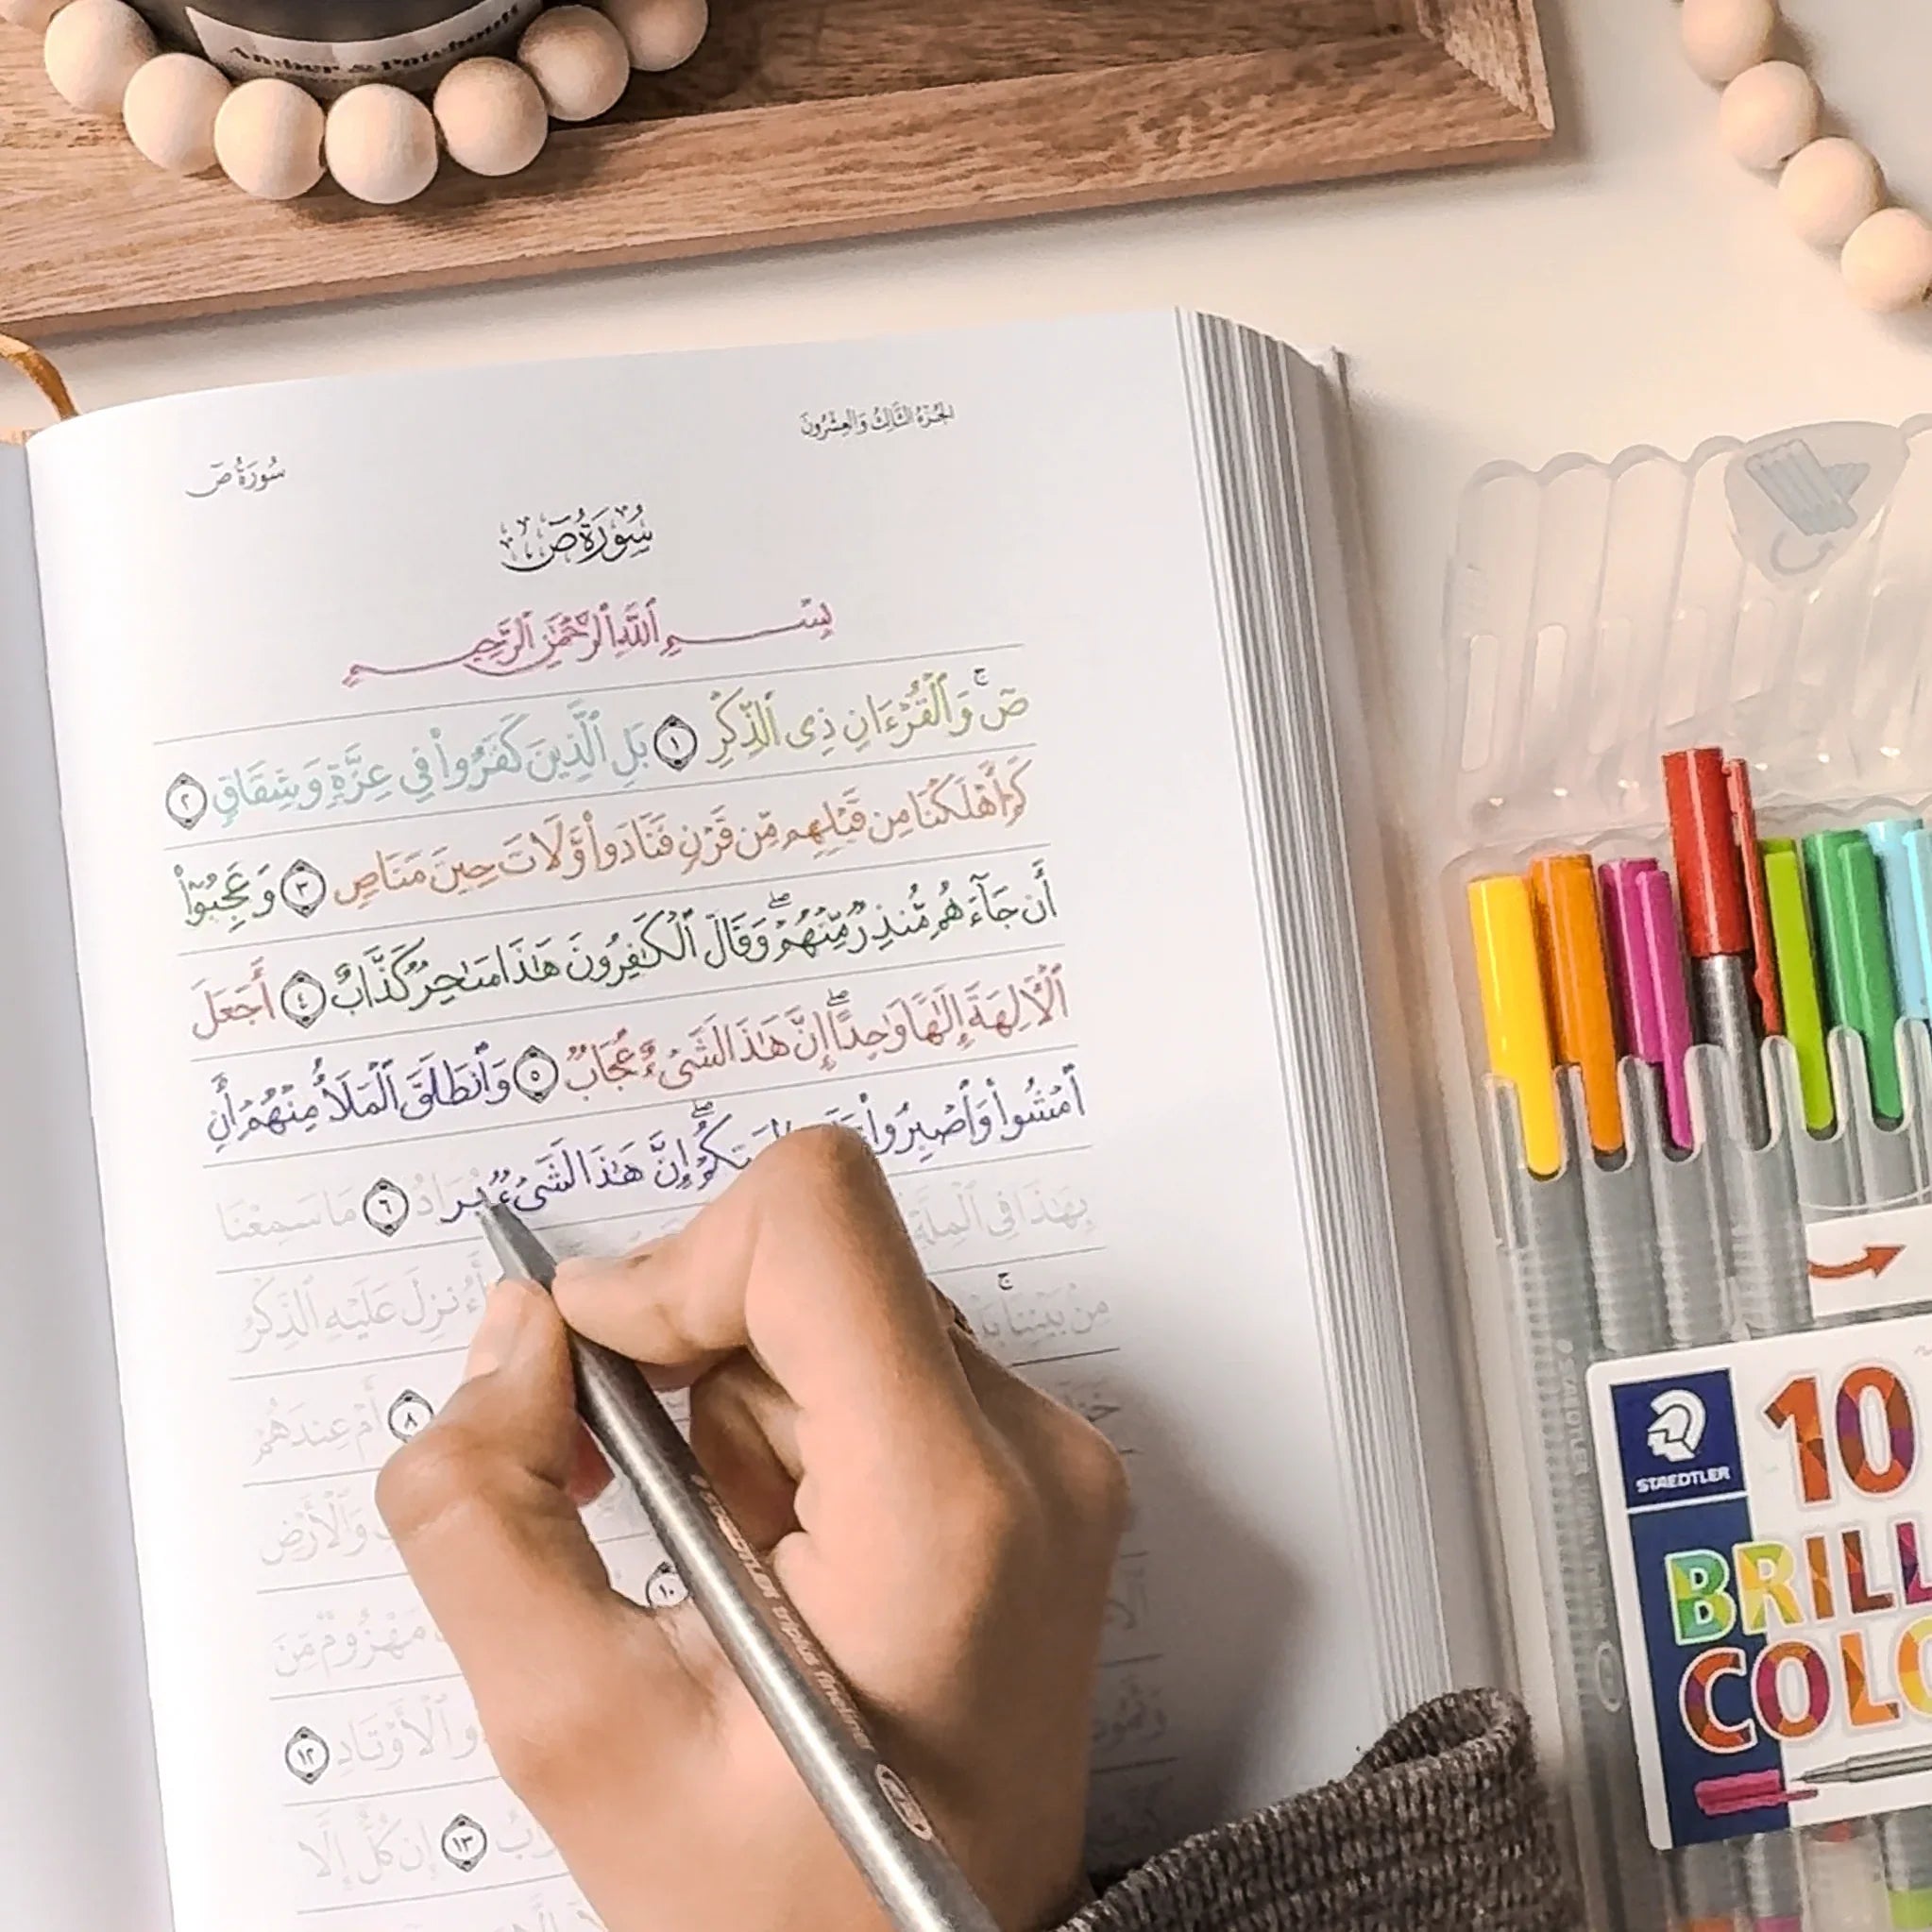 Amber & Patchouli
الجزء الثالث والعشرون
سورة ص
سُورَةُ ص
بِسْمِ ٱللَّهِ ٱلرَّحْمَٰنِ ٱلرَّحِيمِ
صٓ ۚ وَٱلْقُرْءَانِ ذِى ٱلذِّكْرِ ١ بَلِ ٱلَّذِينَ كَفَرُوا۟ فِى عِزَّةٍ وَشِقَاقٍ ٢
كَمْ أَهْلَكْنَا مِن قَبْلِهِم مِّن قَرْنٍ فَنَادَوا۟ وَّلَاتَ حِينَ مَنَاصٍ ٣ وَعَجِبُوٓا۟
أَن جَآءَهُم مُّنذِرٌ مِّنْهُمْ ۖ وَقَالَ ٱلْكَٰفِرُونَ هَٰذَا سَٰحِرٌ كَذَّابٌ ٤ أَجَعَلَ
ٱلْءَالِهَةَ إِلَٰهًا وَٰحِدًا ۖ إِنَّ هَٰذَا لَشَىْءٌ عُجَابٌ ٥ وَٱنطَلَقَ ٱلْمَلَأُ مِنْهُمْ أَنِ
ٱمْشُوا۟ وَٱصْبِرُوا۟ إِنَّ هَٰذَا لَشَىْءٌ يُرَادُ ٦ مَا سَمِعْنَا
بِهَٰذَا فِى ٱلْمِلَّةِ أَءُنزِلَ عَلَيْهِ ٱلذِّكْرُ
مِنۢ بَيْنِنَا ۚ ٨ أَمْ عِندَهُمْ
وَٱلْأَرْضِ
١٠ مَهْزُومٌ مِّنَ
ٱلْأَوْتَادِ ١٢
وَثَمُودُ
١٣ إِن كُلٌّ إِلَّا
STAEDTLER
STAEDTLER triplus fineliner
STAEDTLER
10
BRILL
COLO